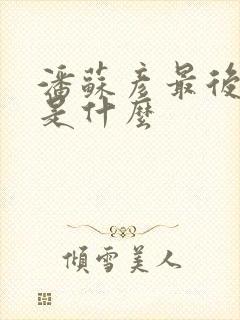 潘蘇彥最後
是什麼
傾雪美人